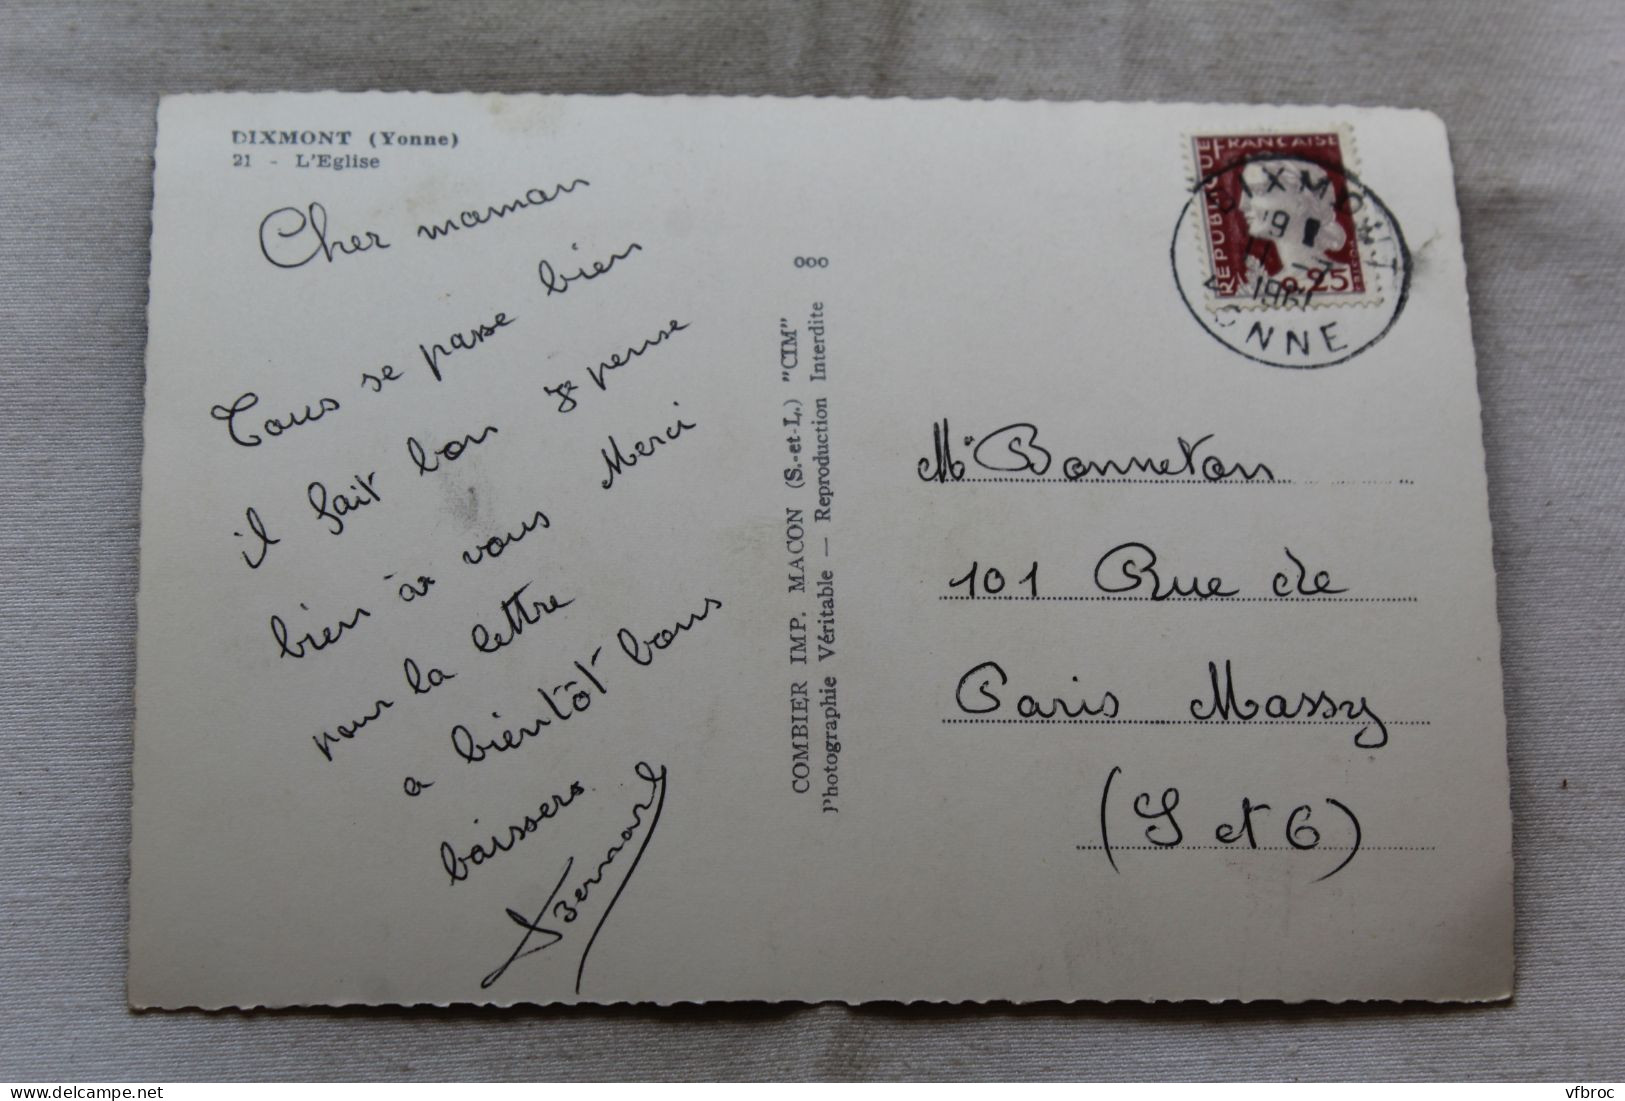 DIXMONT (Yonne)
21 - L'Eglise
Cher maman
Tous se passe bien
il fait bon je pense
bien à vous Merci
pour la lettre
a bientôt bons
baissers
Bernard
COMBIER IMP. MACON (S.-et-L.) "CIM"
Photographie Véritable — Reproduction Interdite
ooo
REPUBLIQUE FRANÇAISE
0.25
DIXMONT
19
11 - 7
1961
YONNE
Me Bonneton
101 Rue de
Paris Massy
(S et O)
vfbroc